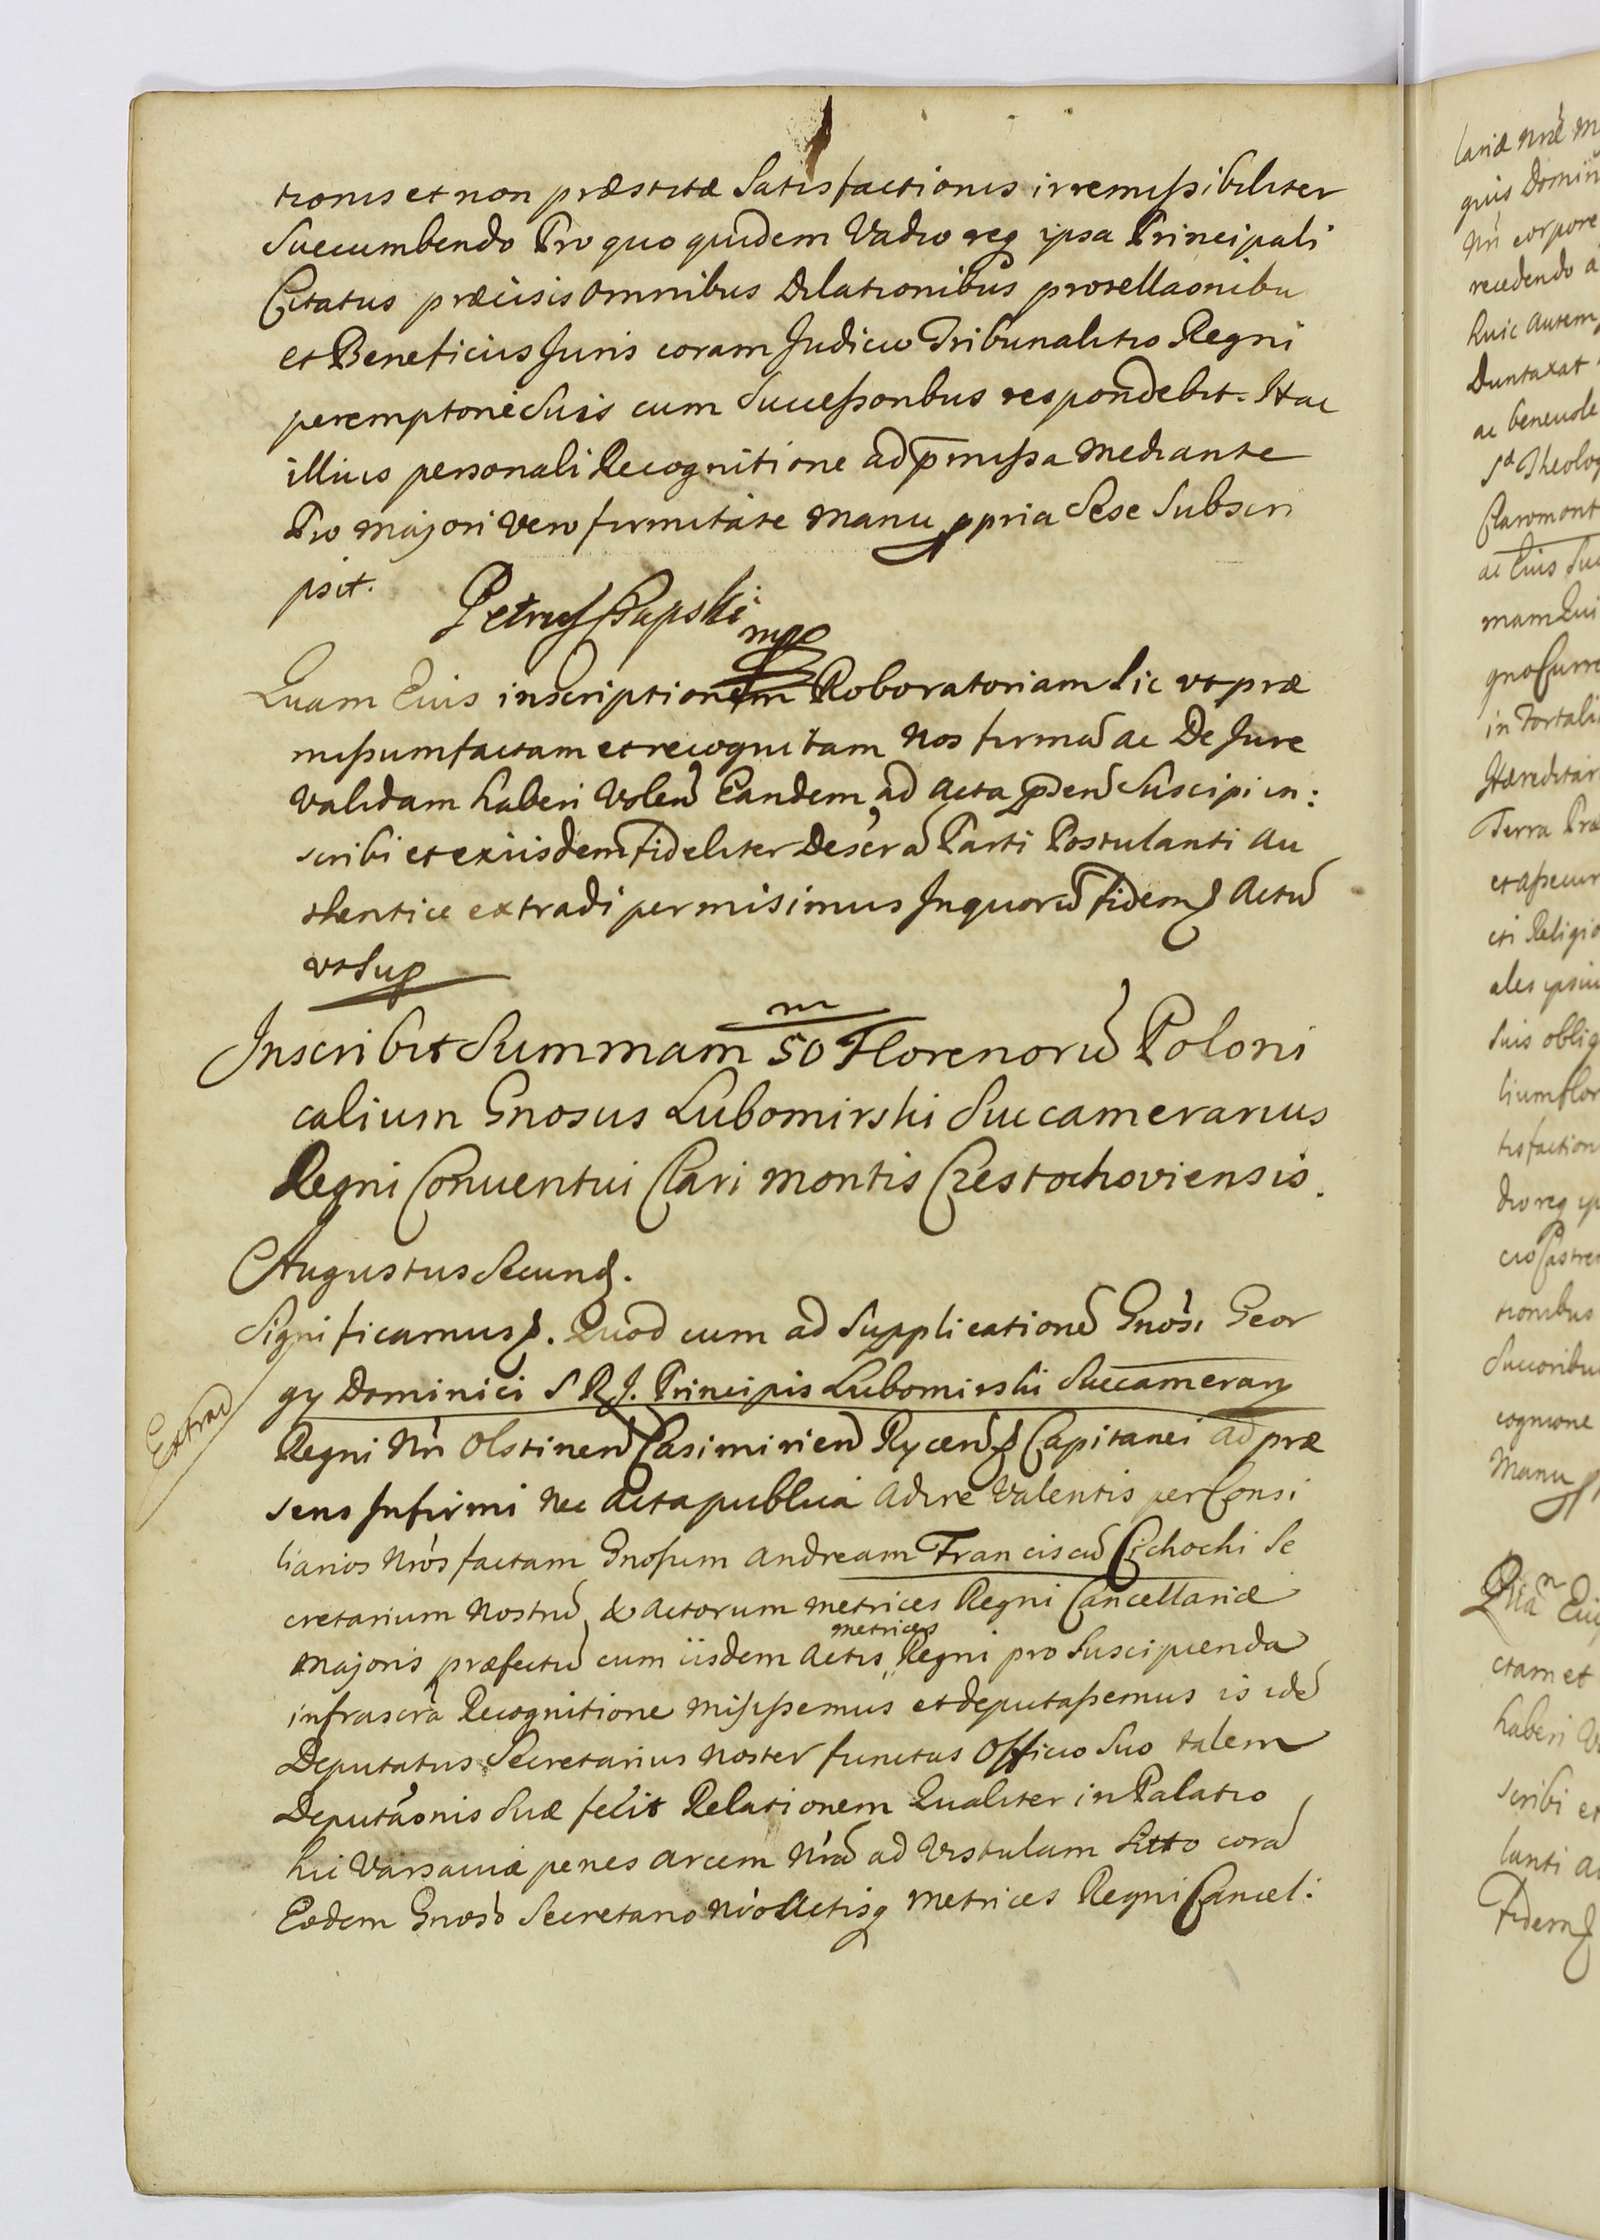 tionis et non præstitæ Satisfactionis irremissibiliter
Succumbendo Pro quo quidem Vadio req ipsa Principali
Citatus præcisis omnibus Dilationibus protellaonibu
et Beneficiis Juris coram Judicio Tribunalitio Regni
peremptorie Suis cum Successoribus respondebit. Hac
illius personali Recognitione ad pmissa mediante
Pro majori vero firmitate manu ppria Sese Subscri
psit.
Petrus mpp
Quam Eius inscriptionem Roboratoriam Sic ut præ
missum factam et recognitam Nos firmã ac De Jure
validam haberi Volen Eandem ad Acta pñen Suscipi in:
scribi et ex iisdem fideliter Descrã Parti Postulanti Au
thentice extradi permisimus In quorũ fidem Actũ
ut Sup
m
Inscribit Summam 50 Florenorũ Poloni
calium Gnosus Lubomirski Succamerarius
Regni Conventui Clari montis Czestochoviensis.
Augustus Secund.
Significamus. Quod cum ad Supplicationẽ Gnosi Geor
gy Dominici S R J. Principis Lubomirski Succamerary
Extrad
Regni Nri Olstinen Casimirien Rycen Capitanei ad præ
sens Infirmi nec Acta publica adire Valentis per Consi
liarios Nros factam Gnosum Andream Franciscũ Cichocki Se
cretarium Nostrũ & Actorum metrices Regni Cancellariæ
majoris præfectũ cum iisdem Actis metrices Regni pro Suscipienda
infrascra Recognitione misissemus et deputassemus is idẽ
Deputatus Secretarius noster functus Officio Suo talem
Deputaonis Suæ fecit Relationem Qualiter in Palatio
hic Varsaviæ penes arcem Nrã ad Vistulam Sitto corã
Eodem Gnoso Secretario Nro Actisq metrices Regni Cancel:
lariæ Nræ M
quis Domin
Nri corpore
recedendo a
huic autem
Duntaxat
ac benevole
Sæ Theolog
Claromont
ac Eius Suc
mam Qui
gno Curre
in Tortali
Hæreditar
Terra Præ
et assecur
cti Religio
ales ipsiu
Suis oblig
lium flor
tisfaction
dio req ip
cio Castren
tionibus
Succoribu
cognione
Manu
Qua Eiu
ctam et
haberi V
scribi et
lanti a
Fidem